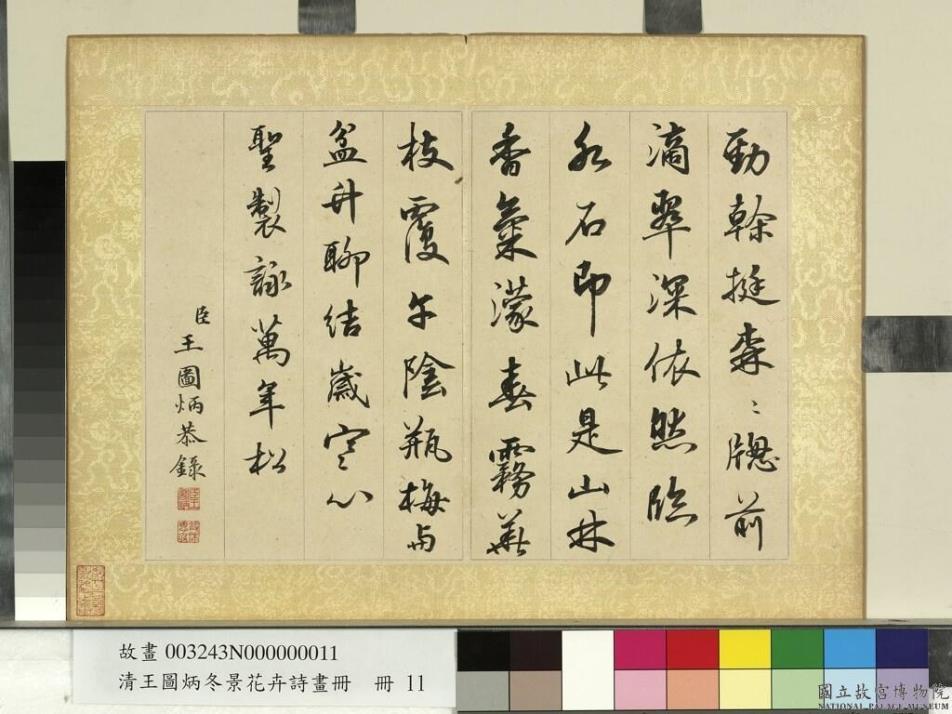 勁榦挺森〻牕前
滴翠深依然臨
水石即此是山林
香氣濛春霧華
枝覆午陰瓶梅与
盆卉聊結歲寒心
聖製詠萬年松
臣王圖炳恭錄
故畫 003243N000000011
清王圖炳冬景花卉詩畫冊　冊 11
國立故宮博物院
NATIONAL PALACE MUSEUM